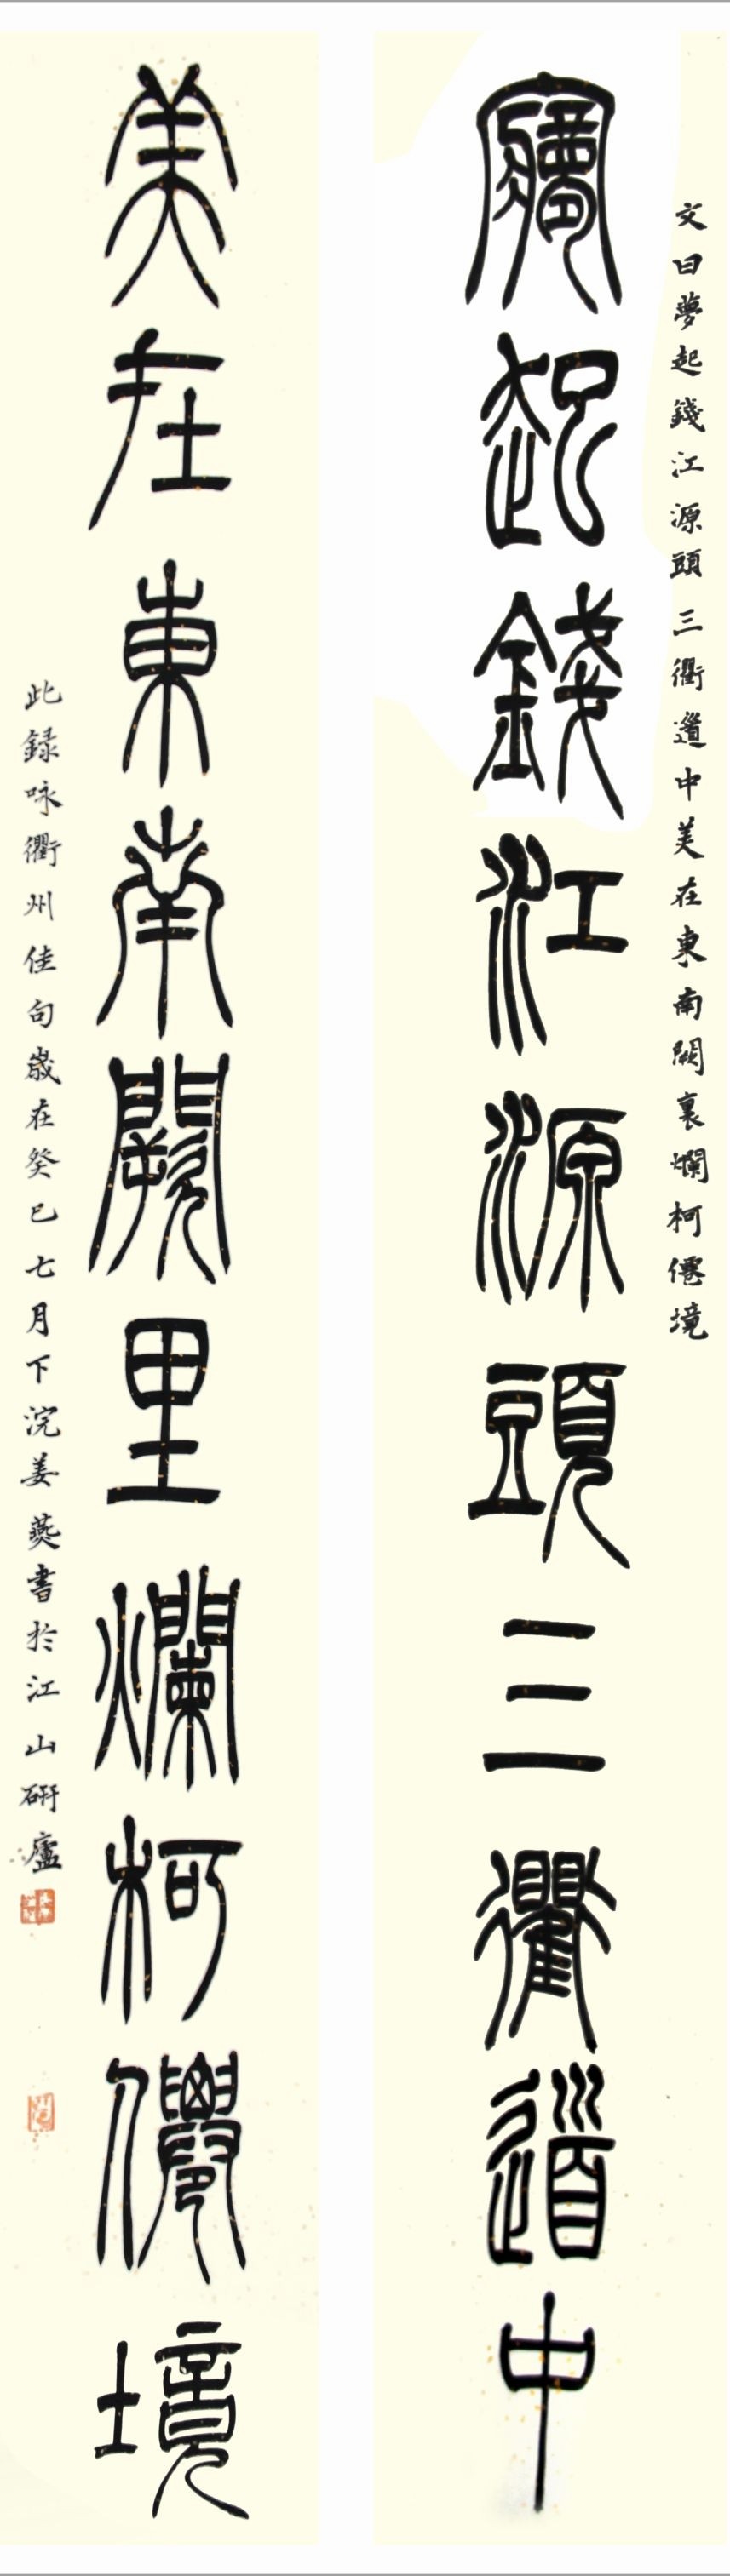 文曰夢起錢江源頭三衢道中美在東南闕裏爛柯僊境
夢起錢江源頭三衢道中
美在東南闕里爛柯僊境
此録咏衢州佳句歲在癸巳七月下浣姜燕書於江山研廬